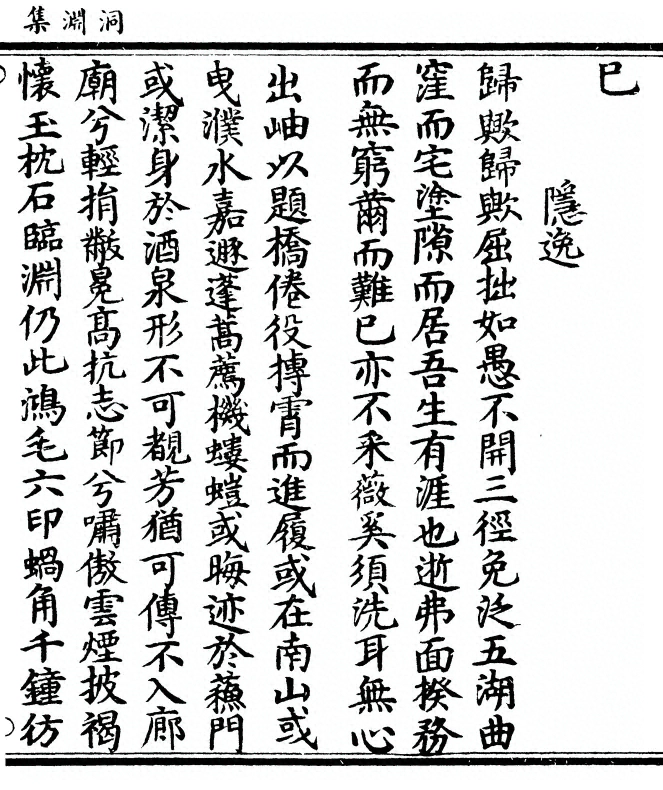 洞淵集
已
隱逸
歸歟歸歟屈拙如愚不開三徑免泛五湖曲
窪而宅塗隙而居吾生有涯也逝弗面揆務
而無窮薾而難已亦不采薇奚須洗耳無心
出岫以題橋倦役摶霄而進履或在南山或
曳濮水嘉遯蓬蒿薦機螻螘或晦迹於蘓門
或潔身於酒泉形不可覩芳猶可傳不入廊
廟兮輕捐黻冕髙抗志節兮嘯傲雲煙披褐
懷玉枕石臨淵仍此鴻毛六印蝸角千鐘彷